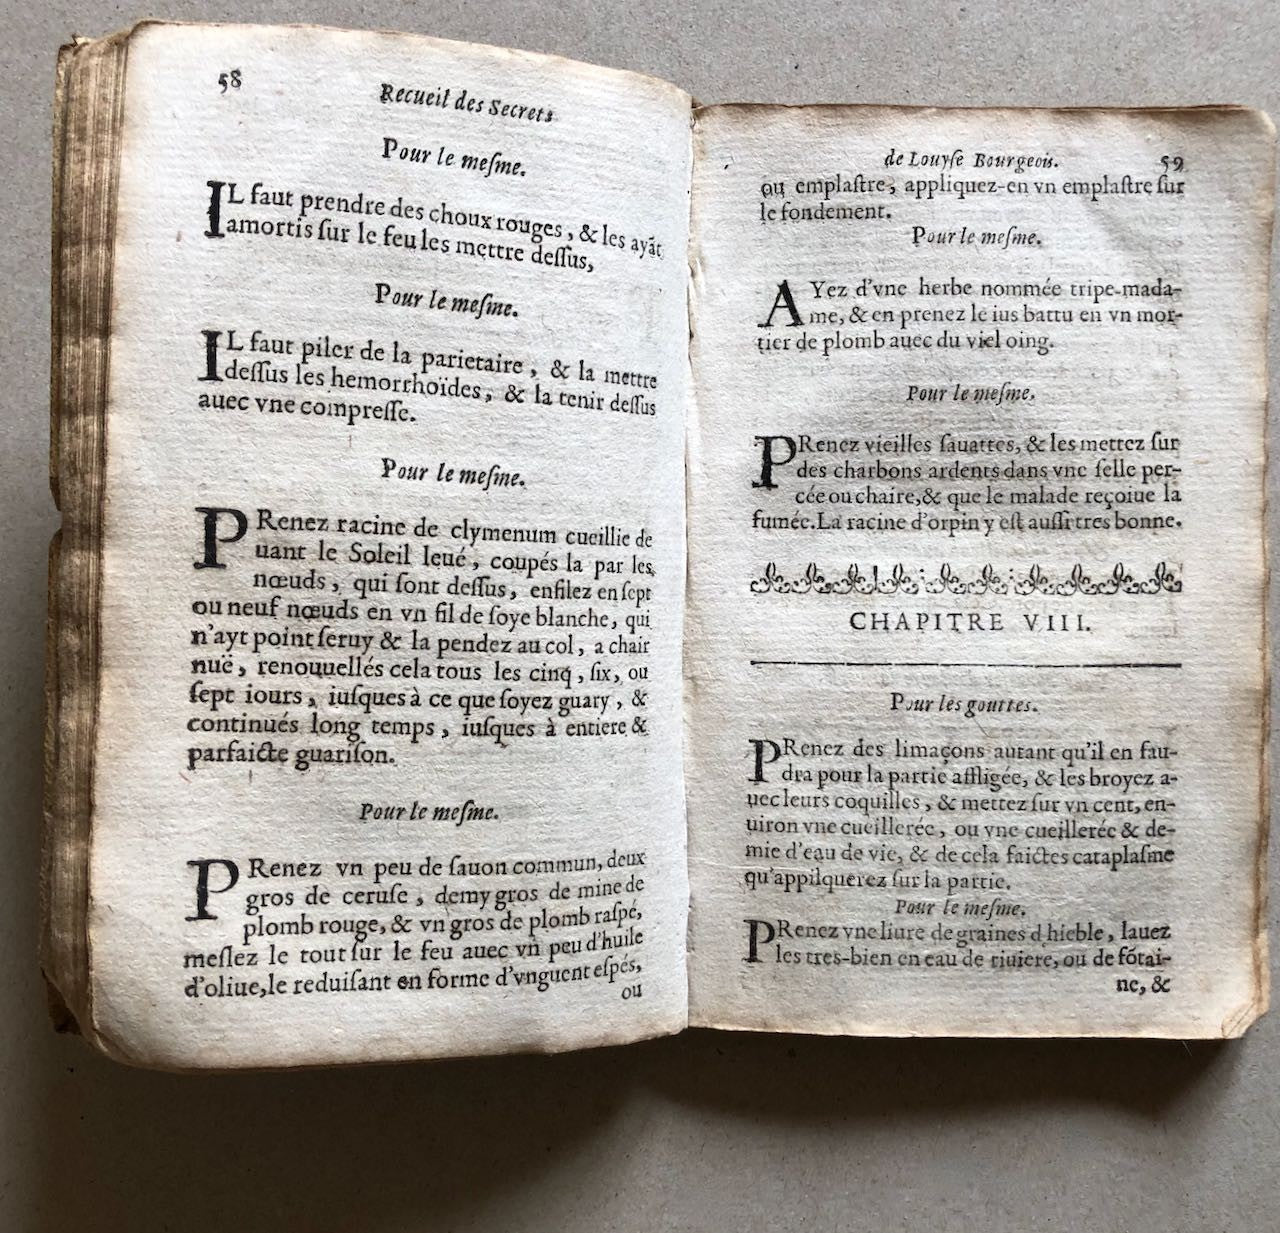 58
Recueil des Secrets
Pour le meſme.
IL faut prendre des choux rouges, & les ayāt
amortis ſur le feu les mettre deſſus,
Pour le meſme.
IL faut piler de la parietaire, & la mettre
deſſus les hemorrhoïdes, & la tenir deſſus
auec vne compreſſe.
Pour le meſme.
PRenez racine de clymenum cueillie de
uant le Soleil leué, coupés la par les
nœuds, qui ſont deſſus, enfilez en ſept
ou neuf nœuds en vn fil de ſoye blanche, qui
n'ayt point ſeruy & la pendez au col, a chair
nuë, renouuellés cela tous les cinq, ſix, ou
ſept iours, iuſques à ce que ſoyez guary, &
continués long temps, iuſques à entiere &
parfaicte guariſon.
Pour le meſme.
PRenez vn peu de ſauon commun, deux
gros de ceruſe, demy gros de mine de
plomb rouge, & vn gros de plomb raſpé,
meſlez le tout ſur le feu auec vn peu d'huile
d'oliue, le reduiſant en forme d'vnguent eſpés,
ou
de Louyſe Bourgeois. 59
ou emplaſtre, appliquez-en vn emplaſtre ſur
le fondement.
Pour le meſme.
AYez d'vne herbe nommée tripe-mada-
me, & en prenez le ius battu en vn mor-
tier de plomb auec du viel oing.
Pour le meſme.
PRenez vieilles ſauattes, & les mettez ſur
des charbons ardents dans vne ſelle per-
cée ou chaire, & que le malade reçoiue la
fumée. La racine d'orpin y eſt auſſi tres bonne.
CHAPITRE VIII.
Pour les gouttes.
PRenez des limaçons autant qu'il en fau-
dra pour la partie affligée, & les broyez a-
uec leurs coquilles, & mettez ſur vn cent, en-
uiron vne cueillerée, ou vne cueillerée & de-
mie d'eau de vie, & de cela faictes cataplaſme
qu'appilquerez ſur la partie.
Pour le meſme.
PRenez vne liure de graines d'hieble, lauez
les tres-bien en eau de riuiere, ou de fōtai-
ne, &